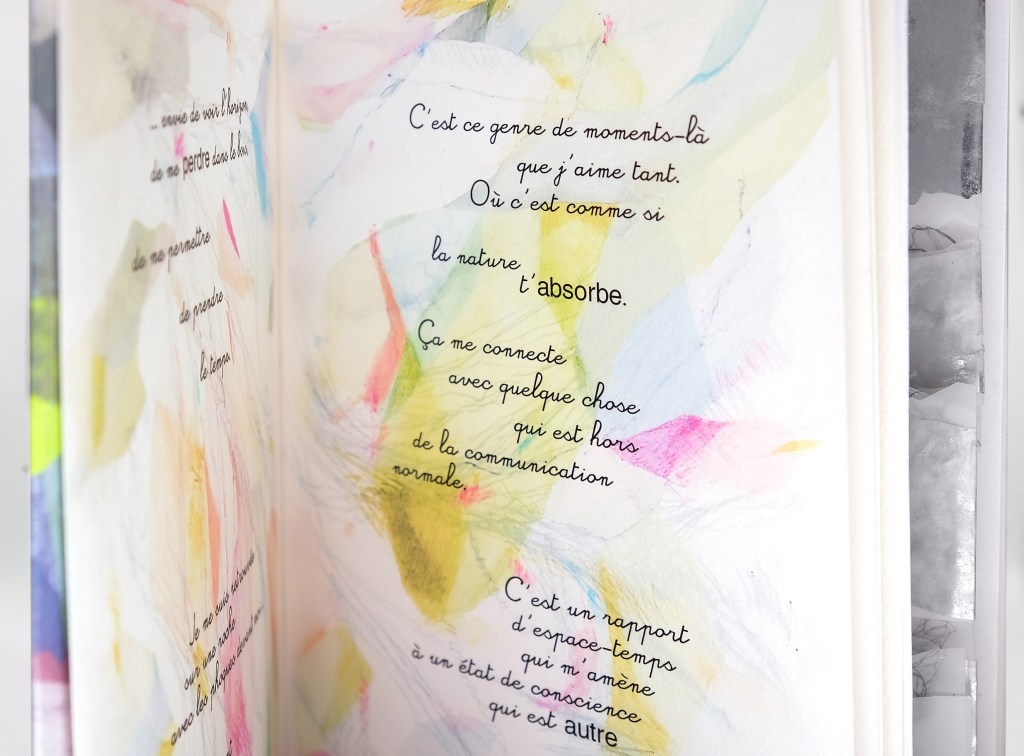 ... envie de voir l'horizon,
de me perdre dans le bleu,
de me permettre
de prendre
le temps.
Je me suis retrouvée
sur une roche
avec les phoques devant
C'est ce genre de moments-là
que j'aime tant.
Où c'est comme si
la nature
t'absorbe.
Ça me connecte
avec quelque chose
qui est hors
de la communication
normale.
C'est un rapport
d'espace-temps
qui m'amène
à un état de conscience
qui est autre